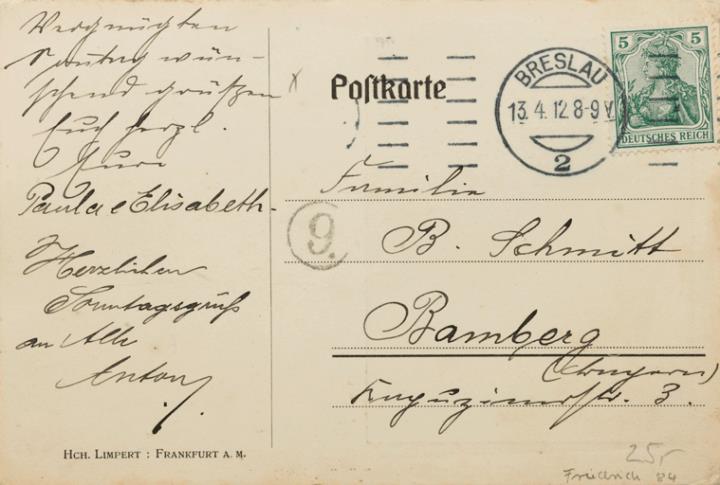 Vergnügten
Sonntag wün-
schend grüßen
Euch herzl.
Eure
Paula e Elisabeth.
Herzlichen
Sonntagsgruß
an Alle
Anton
HCH. LIMPERT : FRANKFURT A. M.
x
Postkarte
BRESLAU
13.4.12 8-9 V
2
5 5
DEUTSCHES REICH
Familie
9.
B. Schmitt
Bamberg
(Bayern)
Kapuzinerstr. 3.
25,-
Friedrich 84